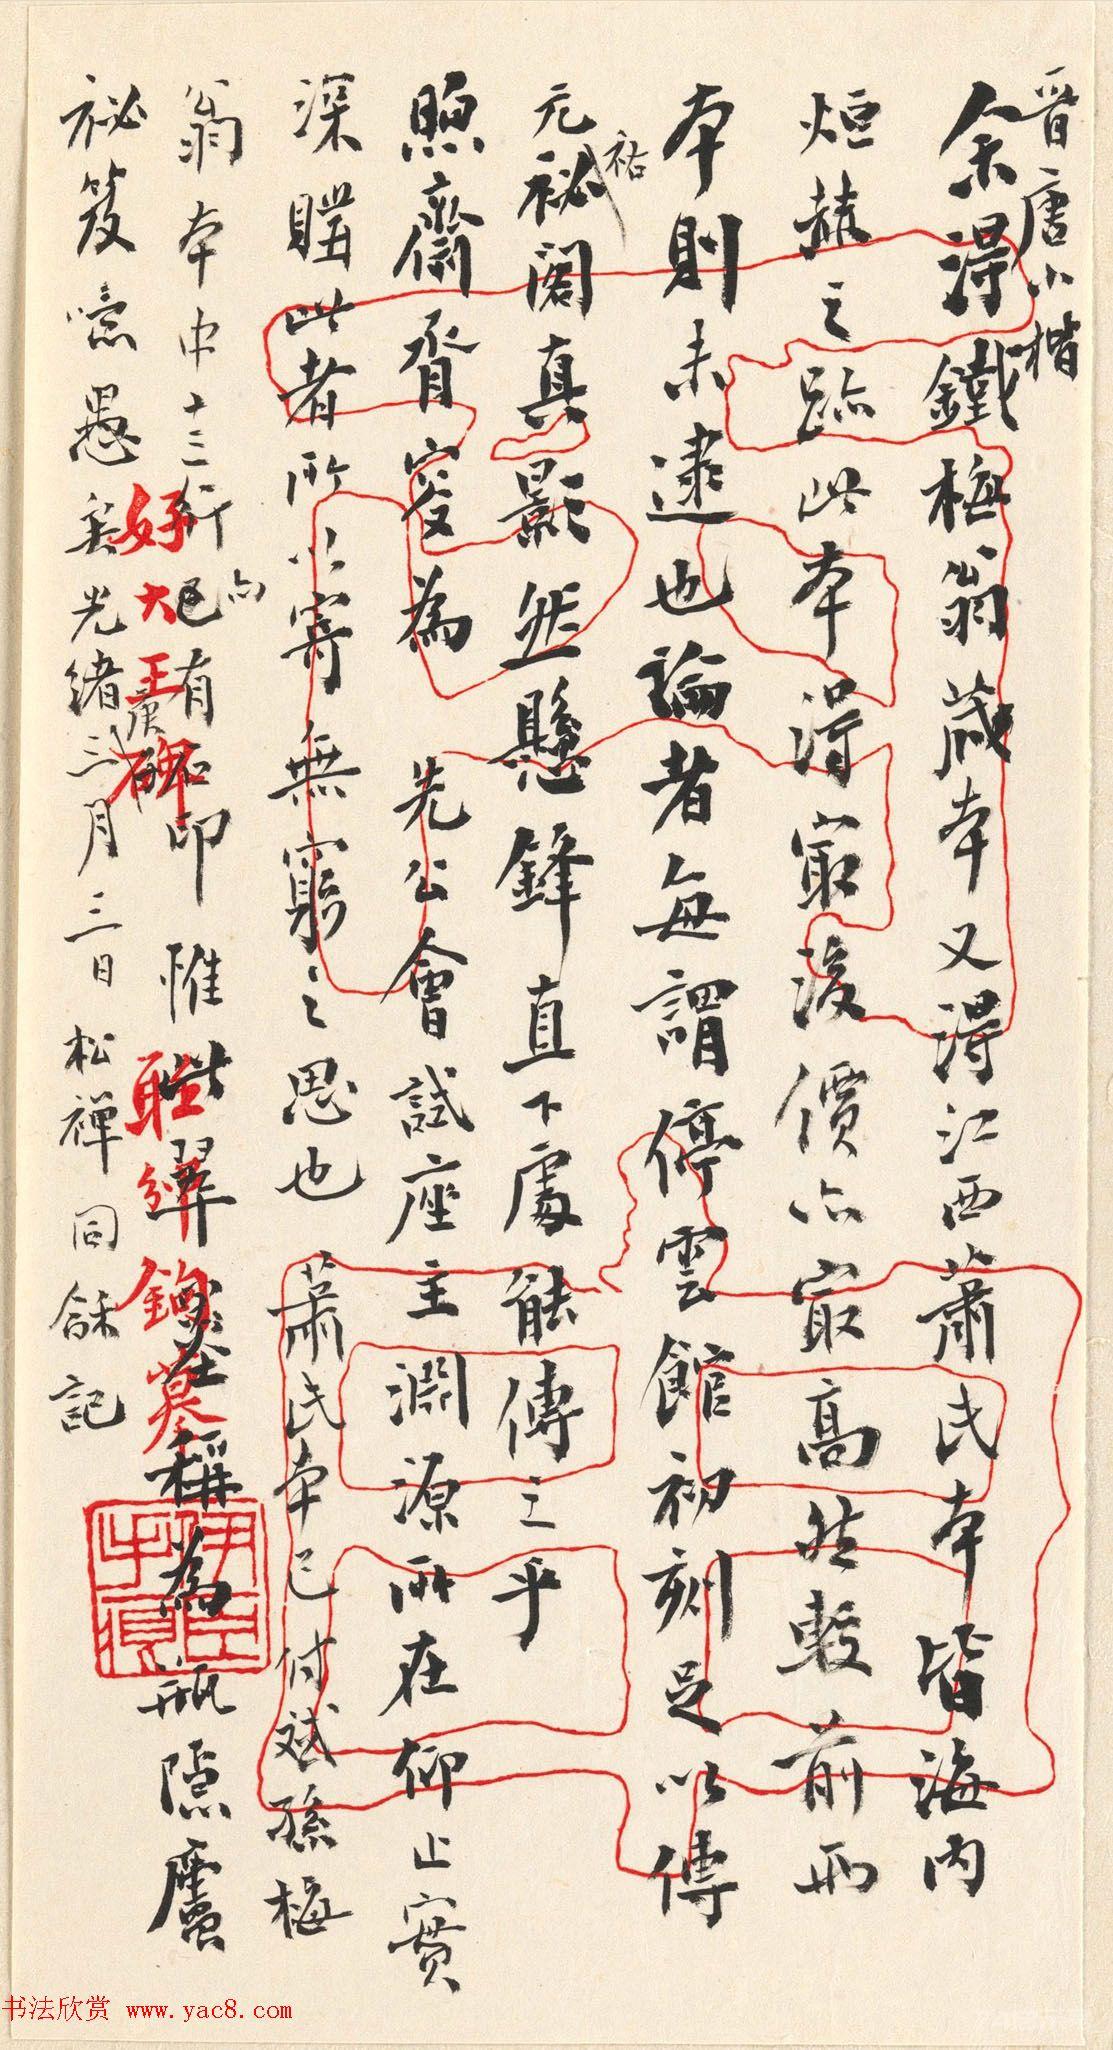 晉唐小楷
余得鐵梅翁藏本又得江西蕭氏本皆海内
炬赫之跡此本得最後價亦最高然較前兩
本則未逮也論者每謂停雲館初刻足以傳
元祕閣真影然懸鋒直下處能傳之乎
祐
照齋胥受為 先公會試座主淵源所在仰止實
深購此者所以寄無窮之思也 蕭氏本已付斌孫梅
翁本中十三行亦已有石印 惟此本稱為瓶隱廬
祕笈噫愚矣光緒三月三日 松禪同龢記
好大王碑
書法欣赏 www.yac8.com